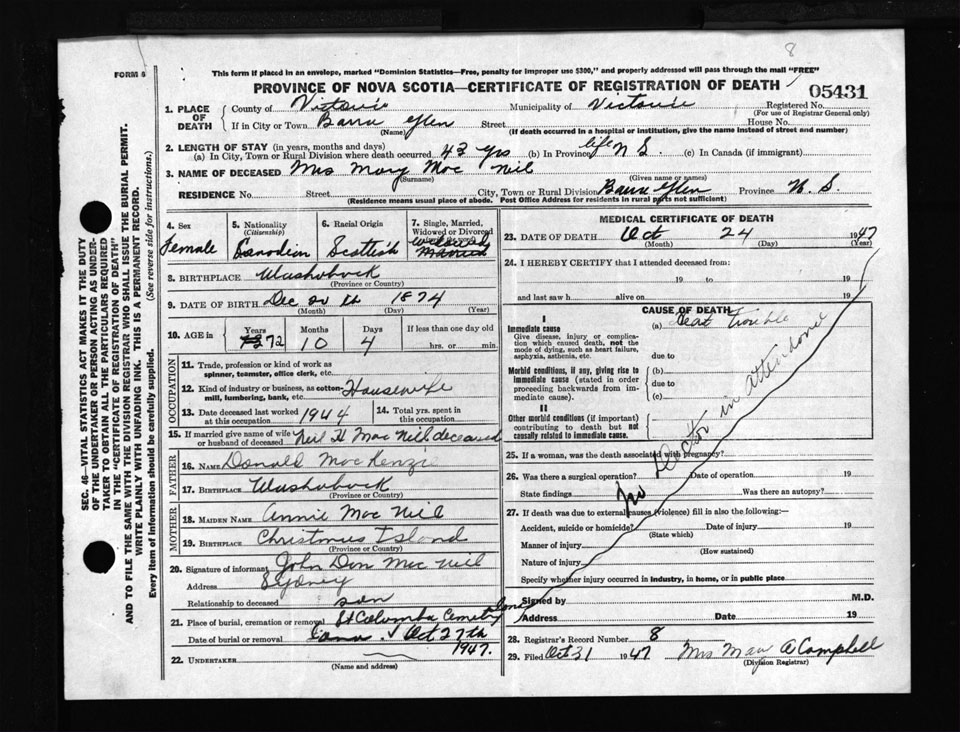 8
FORM 6
This form if placed in an envelope, marked "Dominion Statistics—Free, penalty for improper use $300," and properly addressed will pass through the mail "FREE"
PROVINCE OF NOVA SCOTIA—CERTIFICATE OF REGISTRATION OF DEATH
05431
SEC. 46—VITAL STATISTICS ACT MAKES IT THE DUTY
OF THE UNDERTAKER OR PERSON ACTING AS UNDER-
TAKER TO OBTAIN ALL THE PARTICULARS REQUIRED
IN THE "CERTIFICATE OF REGISTRATION OF DEATH"
AND TO FILE THE SAME WITH THE DIVISION REGISTRAR WHO SHALL ISSUE THE BURIAL PERMIT.
WRITE PLAINLY WITH UNFADING INK. THIS IS A PERMANENT RECORD.
Every item of Information should be carefully supplied. (See reverse side for instructions.)
1. PLACE OF DEATH
County of Victoria Municipality of Victoria Registered No.
(For use of Registrar General only)
If in City or Town Barra Glen Street House No.
(Name) (If death occurred in a hospital or institution, give the name instead of street and number)
2. LENGTH OF STAY (in years, months and days)
(a) In City, Town or Rural Division where death occurred 43 yrs (b) In Province life N S. (c) In Canada (if immigrant)
3. NAME OF DECEASED Mrs Mary Mac Neil
(Surname) (Given name or names)
RESIDENCE No. Street City, Town or Rural Division Barra Glen Province N. S.
(Residence means usual place of abode. Post Office Address for residents in rural parts not sufficient)
4. Sex
Female
5. Nationality
(Citizenship)
Canadian
6. Racial Origin
Scottish
7. Single, Married,
Widowed or Divorced
widowed
Married
8. BIRTHPLACE Washabuck
(Province or Country)
9. DATE OF BIRTH Dec 20 th 1874
(Month) (Day) (Year)
10. AGE in
Years Months Days If less than one day old
72 10 4 hrs. or min.
OCCUPATION
11. Trade, profession or kind of work as
spinner, teamster, office clerk, etc.
12. Kind of industry or business, as cotton-
mill, lumbering, bank, etc. Housewife
13. Date deceased last worked at this occupation 1944
14. Total yrs. spent in
this occupation
15. If married give name of wife
or husband of deceased Neil H Mac Neil deceased
FATHER
16. NAME Donald Mac Kenzie
17. BIRTHPLACE Washabuck
(Province or Country)
MOTHER
18. MAIDEN NAME Annie Mac Neil
19. BIRTHPLACE Christmas Island
(Province or Country)
20. Signature of informant John Dan Mac Neil
Address Sydney
Relationship to deceased son
21. Place of burial, cremation or removal St Columba Cemetery
Date of burial or removal Oct 27th
1947.
22. UNDERTAKER
(Name and address)
MEDICAL CERTIFICATE OF DEATH
23. DATE OF DEATH Oct 24 1947
(Month) (Day) (Year)
24. I HEREBY CERTIFY that I attended deceased from:
19 to 19
and last saw h alive on 19
CAUSE OF DEATH
I
Immediate cause (a) Heart Trouble
Give disease, injury or complica-
tion which caused death, not the
mode of dying, such as heart failure,
asphyxia, asthenia, etc.
due to
Morbid conditions, if any, giving rise to (b)
immediate cause (stated in order due to
proceeding backwards from im-
mediate cause). (c)
II
Other morbid conditions (if important)
contributing to death but not
causally related to immediate cause.
No Doctor in attendance
25. If a woman, was the death associated with pregnancy?
26. Was there a surgical operation? Date of operation 19
State findings Was there an autopsy?
27. If death was due to external causes (violence) fill in also the following:—
Accident, suicide or homicide? Date of injury 19
(State which)
Manner of injury
(How sustained)
Nature of injury
Specify whether injury occurred in industry, in home, or in public place
Signed by M.D.
Address Date 19
28. Registrar's Record Number 8
29. Filed Oct 31 1947 Mrs Mary A Campbell
(Division Registrar)